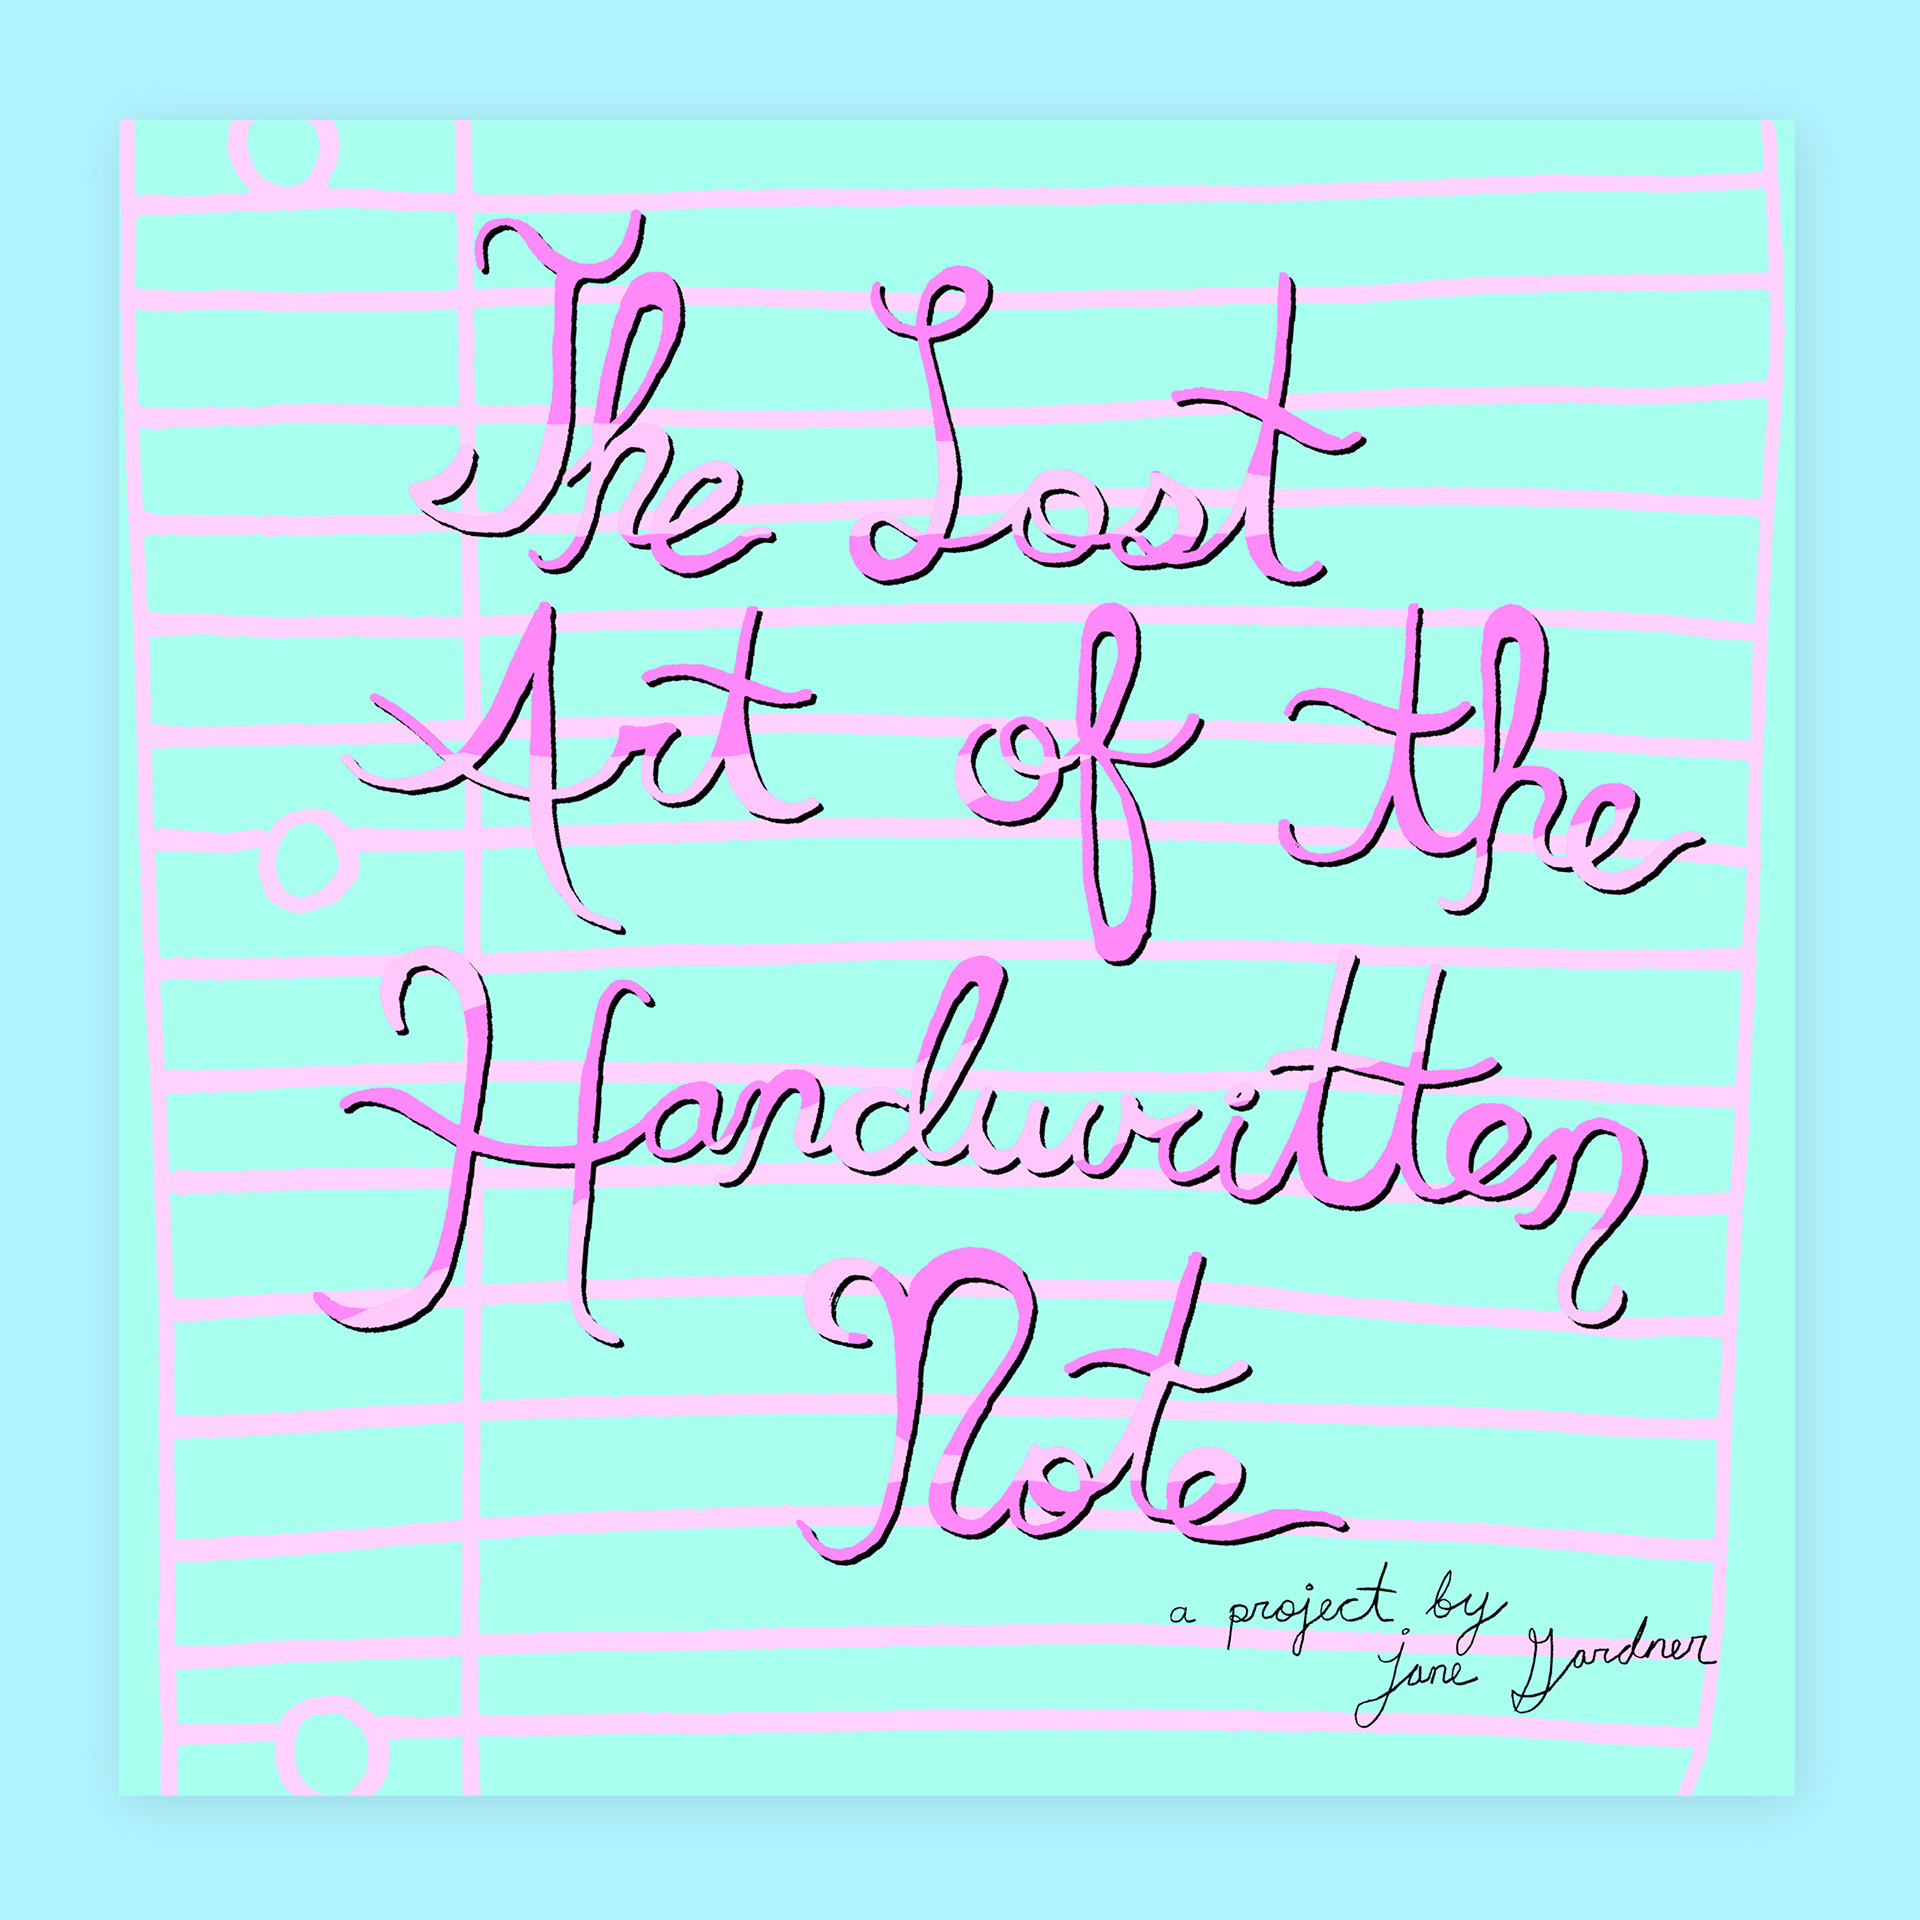 The Lost
Art of the
Handwritten
Note
a project by
Jane Gardner